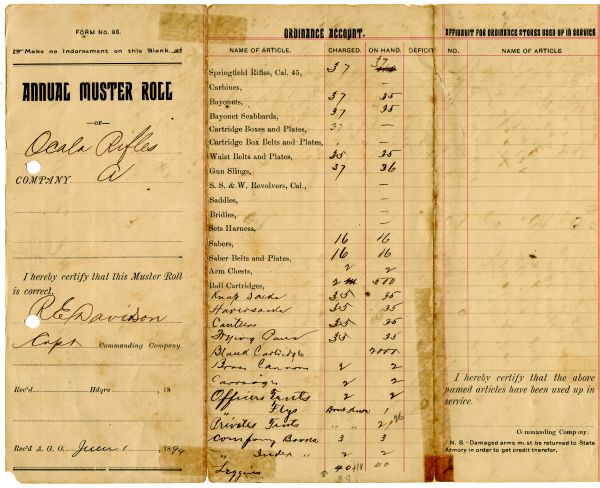 FORM No. 95.
Make no Indorsement on this Blank.
ANNUAL MUSTER ROLL
—OF—
Ocala Rifles
COMPANY A
I hereby certify that this Muster Roll
is correct.
R. E. Davidson
Capt Commanding Company.
Rec'd Hdqrs. , 18
Rec'd A. G. O. June 1 , 1894
ORDINANCE ACCOUNT.
NAME OF ARTICLE. CHARGED. ON HAND. DEFICIT
Springfield Rifles, Cal. 45, 37 37
Carbines, —
Bayonets, 37 35
Bayonet Scabbards, 37 35
Cartridge Boxes and Plates, 37 —
Cartridge Box Belts and Plates, —
Waist Belts and Plates, 35 35
Gun Slings, 37 36
S. S. & W. Revolvers, Cal., —
Saddles, —
Bridles, —
Sets Harness, —
Sabers, 16 16
Saber Belts and Plates, 16 16
Arm Chests, 2 2
Ball Cartridges, 2 m 500
Knap Sacks 35 35
Haversacks 35 35
Canteens 35 35
Frying Pans 35 35
Blank Cartridges 2000
Brass Cannon 2 2
Carriages 2 2
Officers Tents 2 2
" Flys 1
Privates Tents " " 2
Company Books 3 3
" Index " 2 2
Leggins 40 40
AFFIDAVIT FOR ORDINANCE STORES USED UP IN SERVICE
NO. NAME OF ARTICLE
I hereby certify that the above
named articles have been used up in
service.
Commanding Company.
N. B.-Damaged arms must be returned to State
Armory in order to get credit therefor.